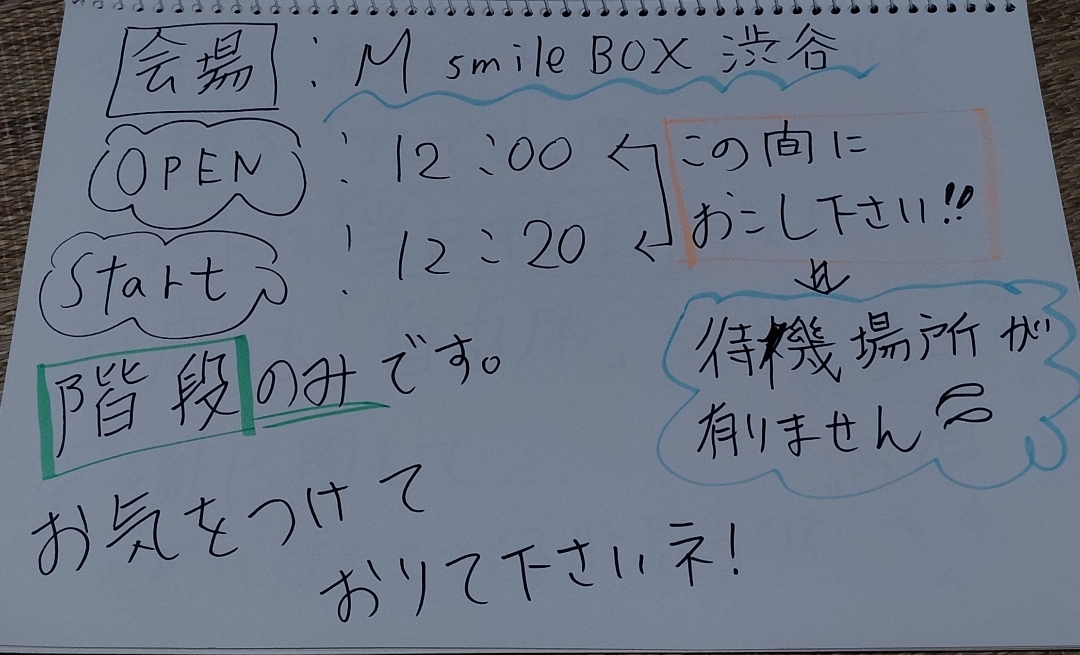 会場 : M smile BOX 渋谷
OPEN : 12:00
この間に
おこし下さい!!
Start : 12:20
待機場所が
有りません
階段のみです。
お気をつけて
おりて下さいネ!